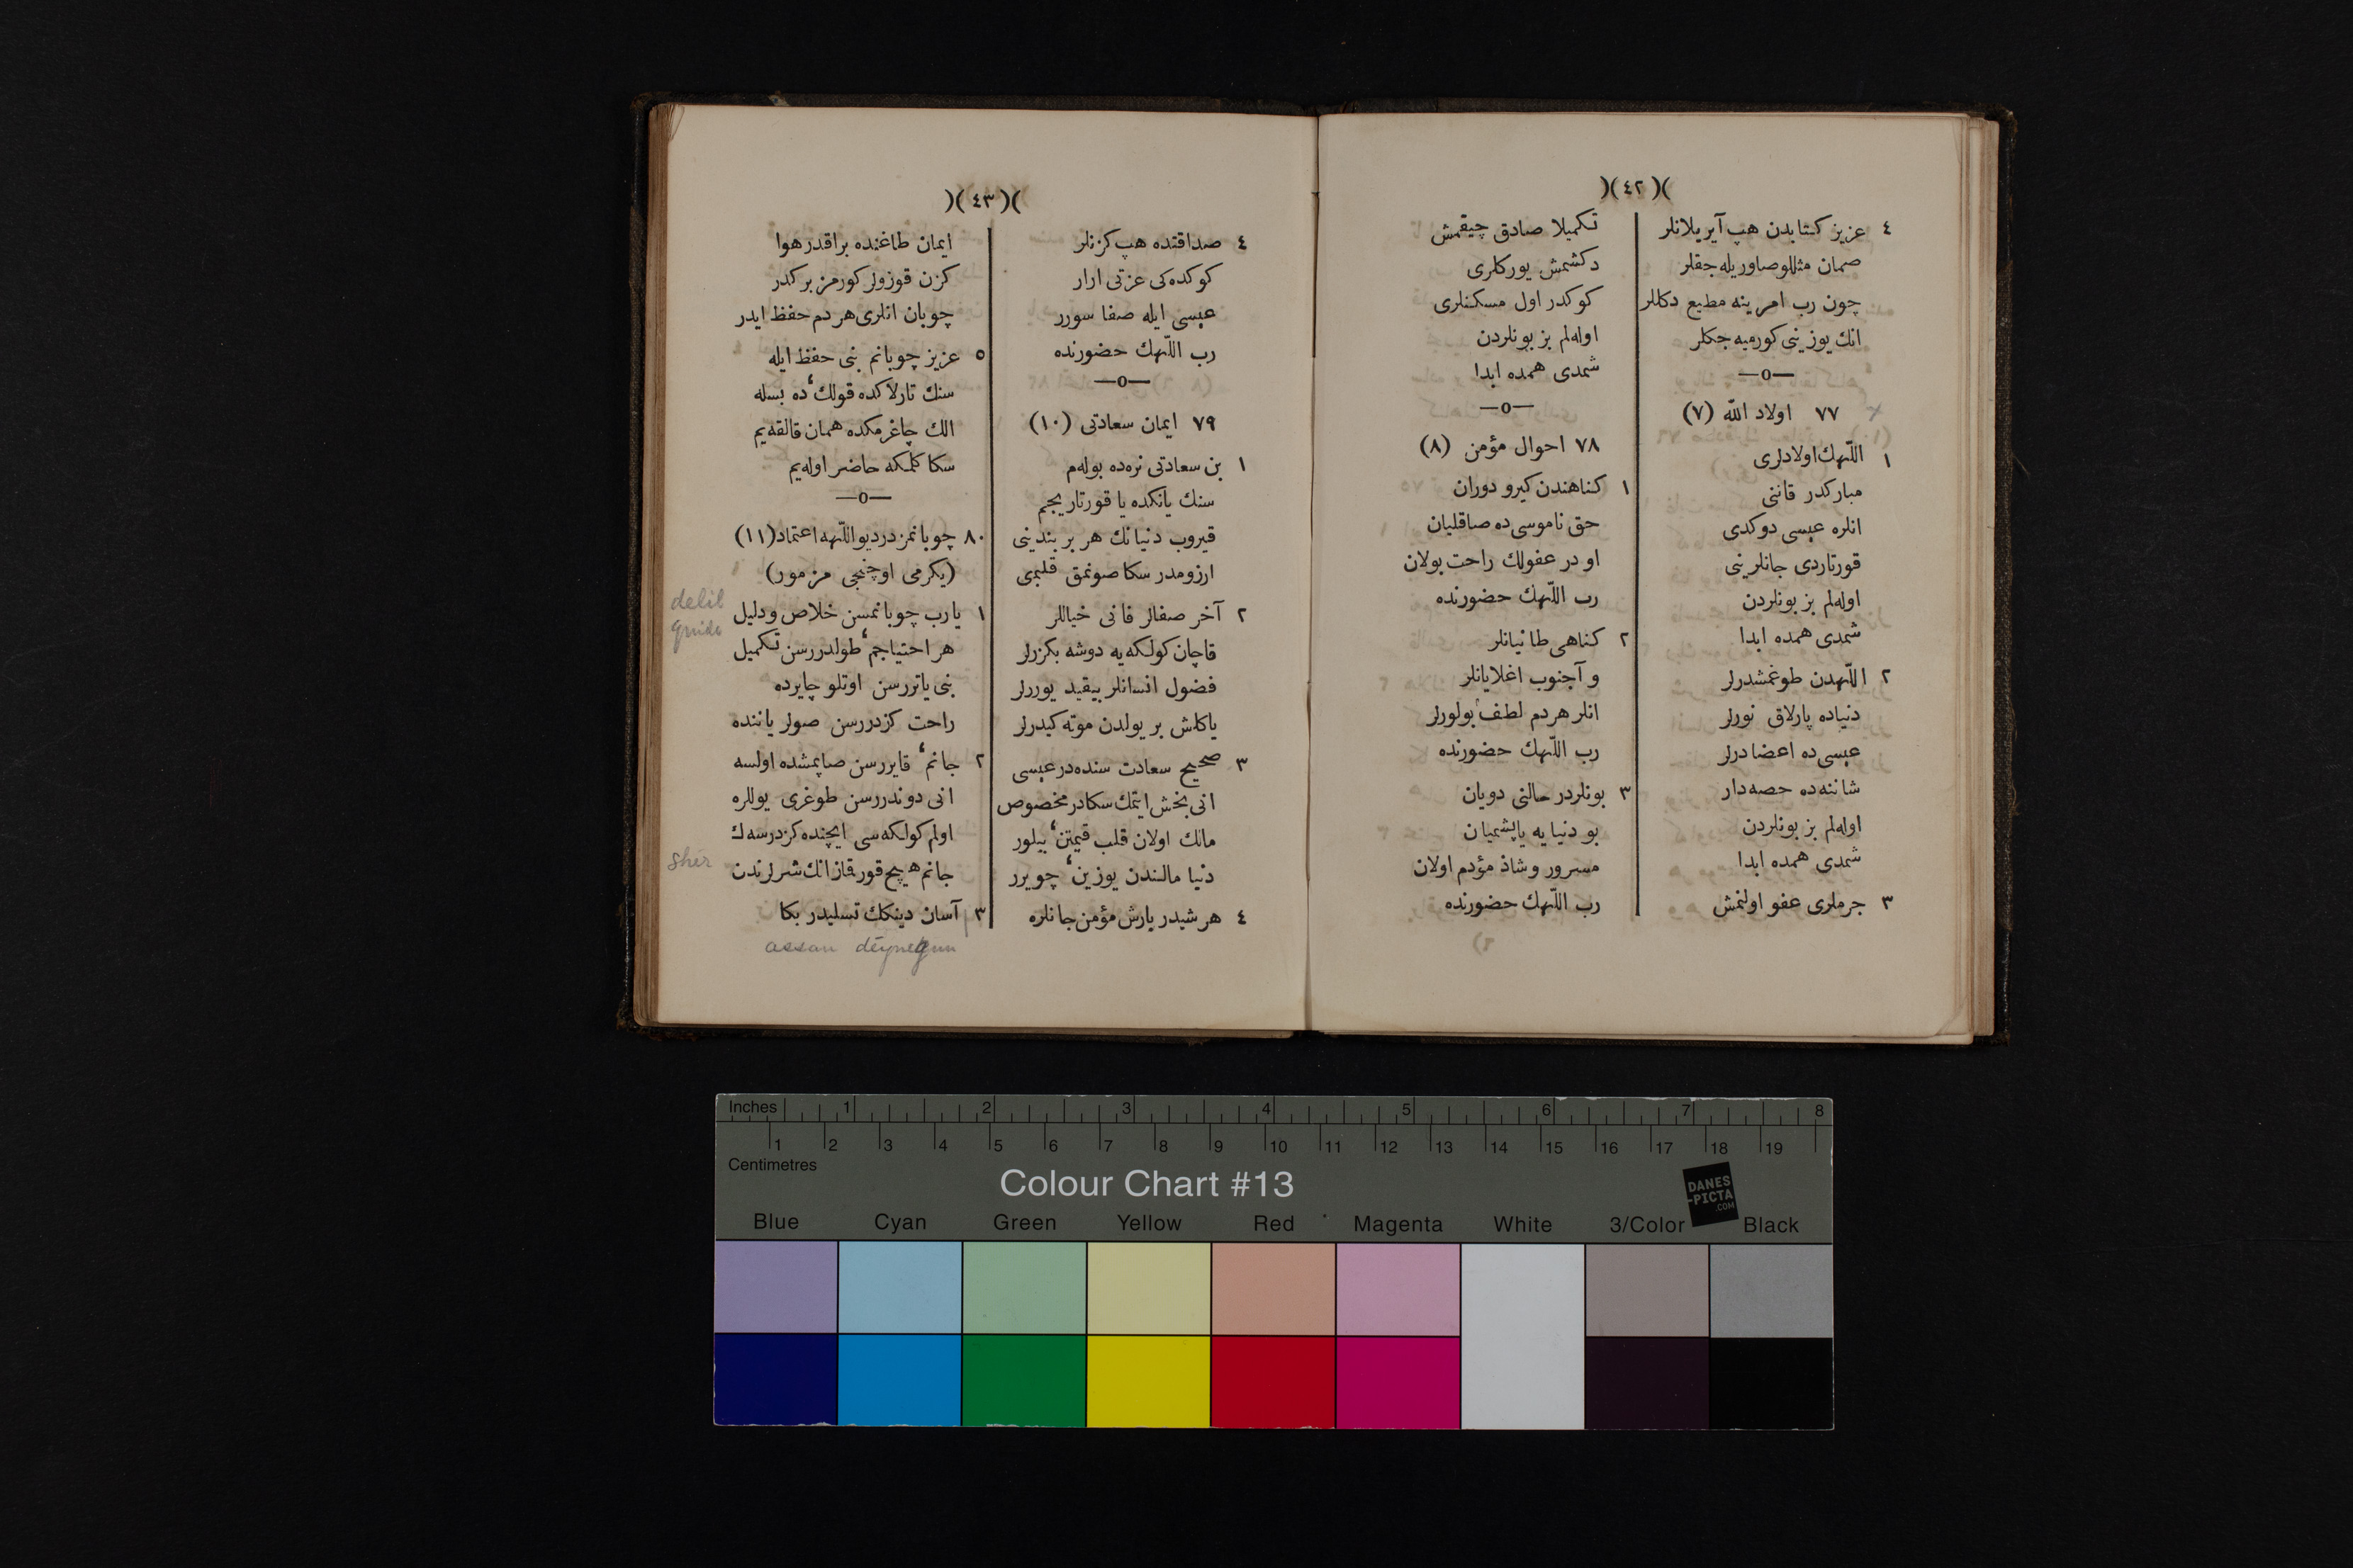 )(٤٢)(
٤ عزيز كتابدن هپ آيريلانلر
صمان مثللو صاوريله جقلر
چون رب امرينه مطيع دكللر
انك يوزينى كورميه جكلر
—o—
٧٧ اولاد الله (٧)
١ اللّهك اولادلرى
مباركدر قاننى
انلره عيسى دوكدى
قورتاردى جانلرينى
اوله‌لم بز بونلردن
شمدى همده ابدا
٢ اللّهدن طوغمشدرلر
دنياده پارلاق نورلر
عيسى ده اعضادرلر
شاننه ده حصه دار
اوله‌لم بز بونلردن
شمدى همده ابدا
٣ جرملرى عفو اولنمش
تكميلا صادق چيقمش
دكشمش يوركلرى
كوكدر اول مسكنلرى
اوله‌لم بز بونلردن
شمدى همده ابدا
—o—
٧٨ احوال مؤمن (٨)
١ كناهندن كيرو دوران
حق ناموسى ده صاقليان
او در عفولك راحت بولان
رب اللّهك حضورنده
٢ كناهى طانيانلر
و آجنوب اغلايانلر
انلر هردم لطف بولورلر
رب اللّهك حضورنده
٣ بونلردر حالنى دويان
بو دنيايه ياپشميان
مسرور وشاذ مؤدم اولان
رب اللّهك حضورنده
)(٤٣)(
٤ صداقتده هپ كزنلر
كوكده كى عزتى ارار
عيسى ايله صفا سورر
رب اللّهك حضورنده
—o—
٧٩ ايمان سعادتى (١٠)
١ بن سعادتى نره‌ده بوله‌م
سنك يانكده يا قورتاريجيم
قيروب دنيانك هر بر بندينى
ارزومدر سكا صونمق قلبمى
٢ آخر صفالر فانى خياللر
قاچان كولكه يه دوشه بكزرلر
فضول انسانلر بيقيد يوررلر
ياكلش بر يولدن موته كيدرلر
٣ صحيح سعادت سنده در عيسى
انى بخش ايتمك سكادر مخصوص
مالك اولان قلب قيمتن بيلور
دنيا مالندن يوزين چويرر
٤ هر شيدر بارش مؤمن جانلره
ايمان طاغنده براقدر هوا
كزن قوزولر كورمز بر كدر
چوبان انلرى هر دم حفظ ايدر
٥ عزيز چوبانم بنى حفظ ايله
سنك تارلاكده قولك ده بسله
الك چاغرمكده همان قالقه‌يم
سكا كلمكه حاضر اوله‌يم
—o—
٨٠ چوبانمز در ديو اللّهه اعتماد (١١)
(يكرمى اوچنجى مزمور)
١ يا رب چوبانمسن خلاص و دليل
هر احتياجم طولدررسن تكميل
بنى ياتررسن اوتلو چايرده
راحت كزدررسن صولر ياننده
٢ جانم قايررسن صاپمشده اولسه
انى دوندررسن طوغرى يوللره
اولم كولكه سى ايچنده كزدرسه ك
جانم هيچ قورقماز انك شرلرندن
٣ آسان دينكك تسليدر بكا
delil
guide
sher
assan deynegun
Inches 1 2 3 4 5 6 7 8
1 2 3 4 5 6 7 8 9 10 11 12 13 14 15 16 17 18 19
Centimetres
Colour Chart #13
DANES
-PICTA
.COM
Blue Cyan Green Yellow Red Magenta White 3/Color Black